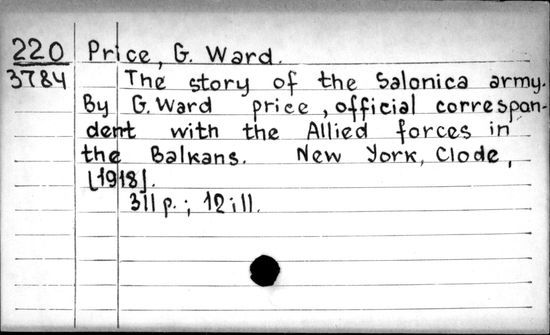 220 Price, G. Ward.
3784 The story of the Salonica army.
By G. Ward price, official correspon-
dent with the Allied forces in
the Balkans. New York, Clode,
[1918].
311 p.; 12 ill.